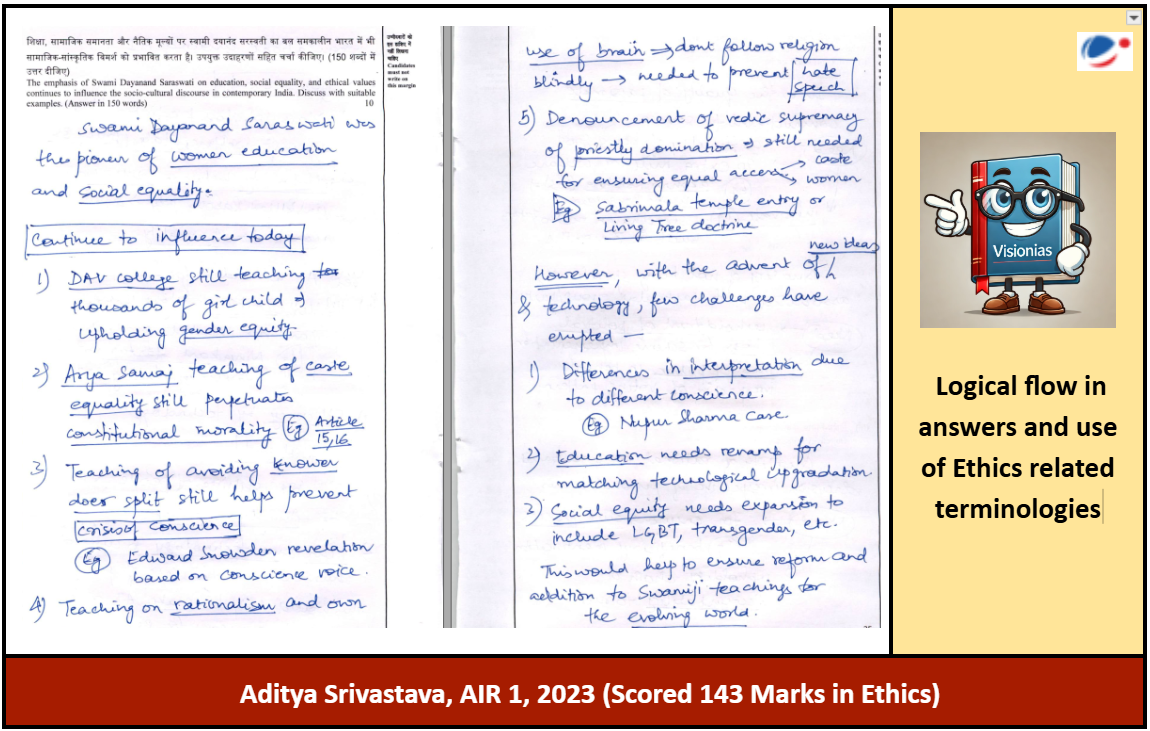 शिक्षा, सामाजिक समानता और नैतिक मूल्यों पर स्वामी दयानंद सरस्वती का बल समकालीन भारत में भी
सामाजिक-सांस्कृतिक विमर्श को प्रभावित करता है। उपयुक्त उदाहरणों सहित चर्चा कीजिए। (150 शब्दों में
उत्तर दीजिए)
The emphasis of Swami Dayanand Saraswati on education, social equality, and ethical values
continues to influence the socio-cultural discourse in contemporary India. Discuss with suitable
examples. (Answer in 150 words) 10
उम्मीदवारों को
इस हाशिये में
नहीं लिखना
चाहिए
Candidates
must not
write on
this margin
Swami Dayanand Saraswati was
the pioneer of women education
and social equality.
Continue to influence today
1) DAV college still teaching for
thousands of girl child &
upholding gender equity.
2) Arya Samaj teaching of caste
equality still perpetuates
constitutional morality Eg Article
15,16
3) Teaching of avoiding knower
doer split still helps prevent
crisis of conscience
Eg Edward Snowden revelation
based on conscience voice.
4) Teaching on rationalism and own
use of brain ⇒ dont follow religion
blindly → needed to prevent hate
speech
5) Denouncement of vedic supremacy
of priestly domination ⇒ still needed
for ensuring equal access → caste
→ women
Eg Sabrimala temple entry or
Living Tree doctrine
However, with the advent of new ideas
& technology, few challenges have
erupted —
1) Differences in interpretation due
to different conscience.
Eg Nupur Sharma case.
2) Education needs revamp for
matching technological upgradation
3) Social equity needs expansion to
include LGBT, transgender, etc.
This would help to ensure reform and
addition to Swamiji teachings for
the evolving world.
Visionias
Logical flow in
answers and use
of Ethics related
terminologies
Aditya Srivastava, AIR 1, 2023 (Scored 143 Marks in Ethics)